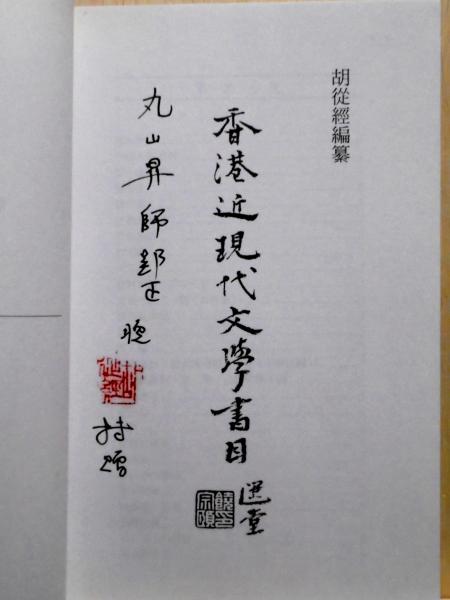 胡從經編纂
香港近現代文學書目
選堂
饒
宗頤
丸山昇師郢正
晚
持贈